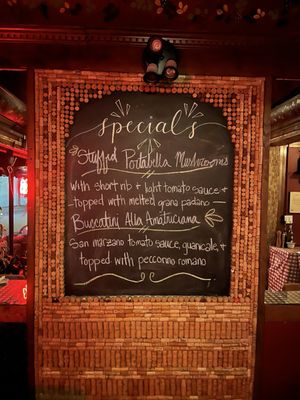 specials
Stuffed Portabella Mushrooms
with short rib + light tomato sauce +
topped with melted grana padano
Buccatini Alla Amatriciana
San marzano tomato sauce, guancale, +
topped with peccorino romano